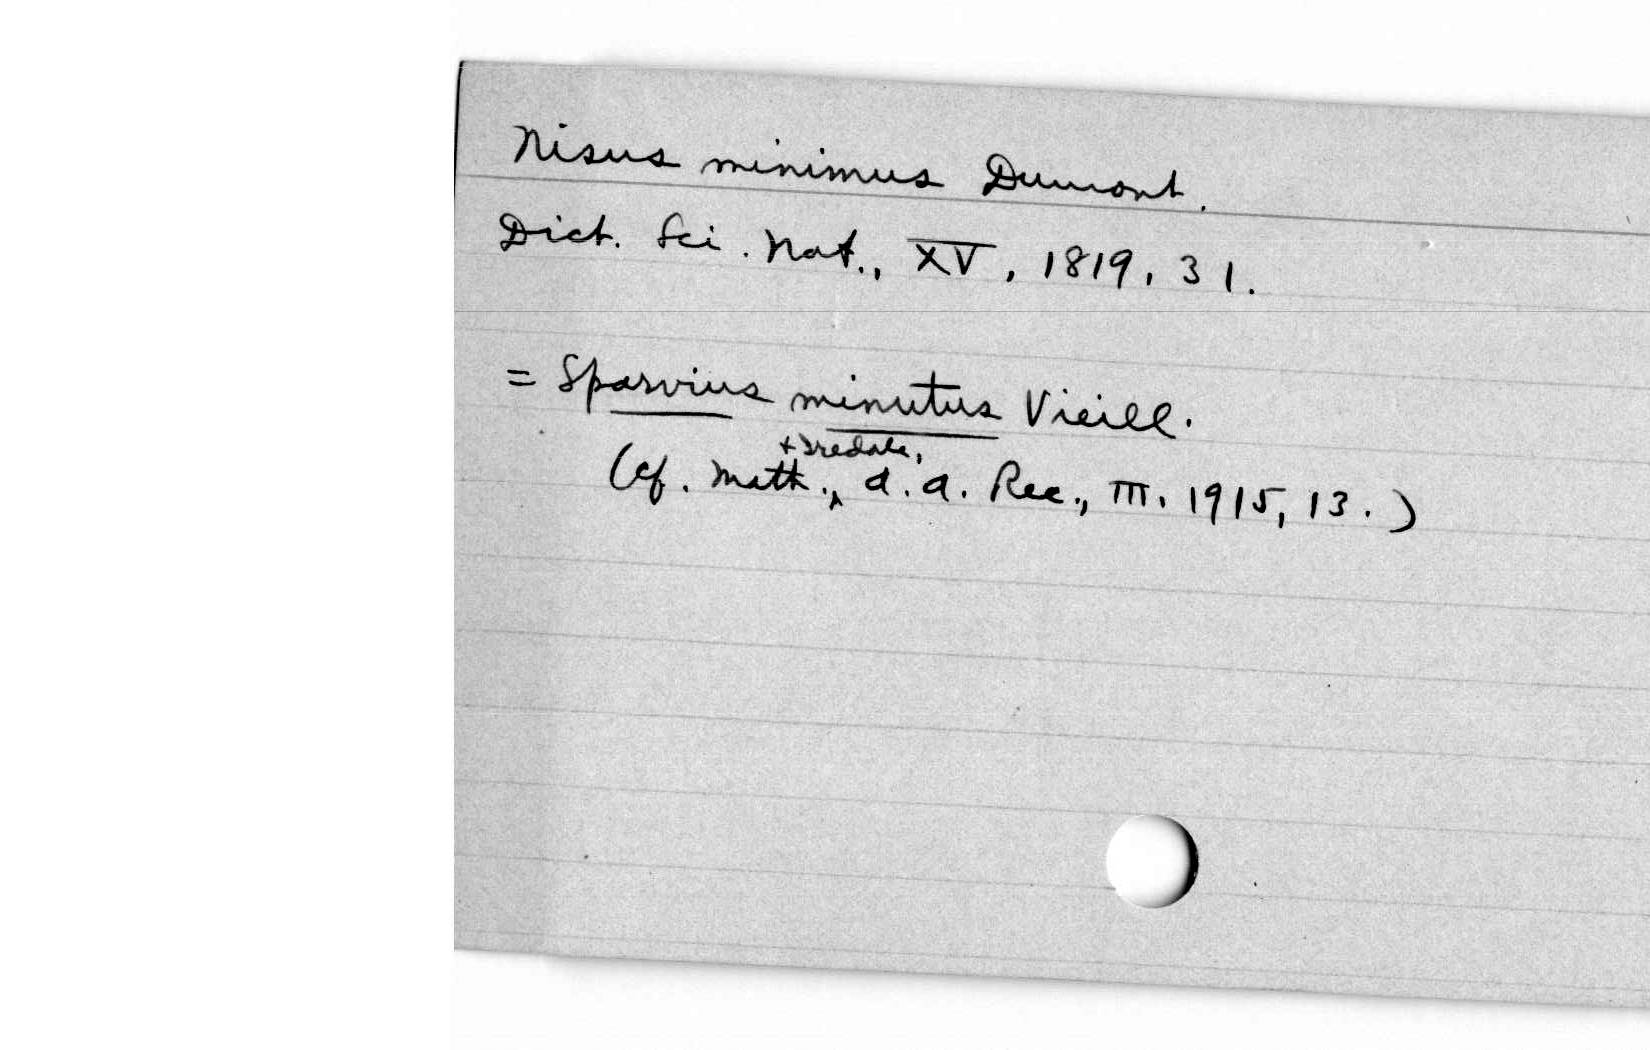 Nisus minimus Dumont.
Dict. Sci. Nat., XV, 1819, 31.
= Sparvius minutus Vieill.
+ Iredale,
(cf. Math., A. A. Rec., III. 1915, 13.)